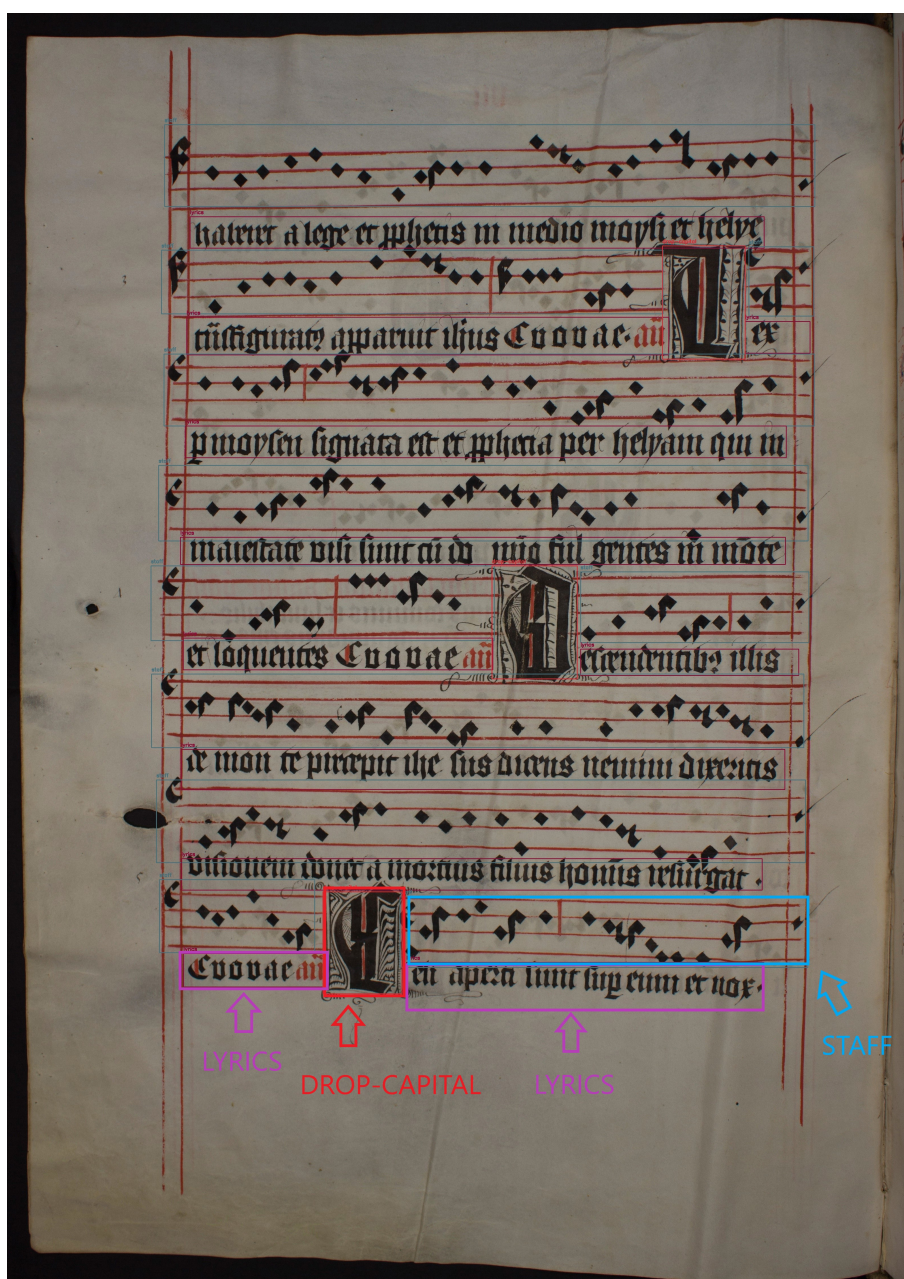 haberet a lege et ꝓphetis in medio moysi et helye
trāsfigurat9 apparuit ihus Euouae. añ L ex
p moysen signata est et ꝓphetia per helyam qui in
maiestate visi sunt cū do mīo fiil gentes in mōte
et loquentes Euouae añ D escendentib9 illis
de mon te precepit ihe sus dicens nemini dixeritis
visionem donec a mortuis filius homīs resurgat.
Euouae añ eñ aperti sunt suꝑ eum et vox.
LYRICS
DROP-CAPITAL
LYRICS
STAFF